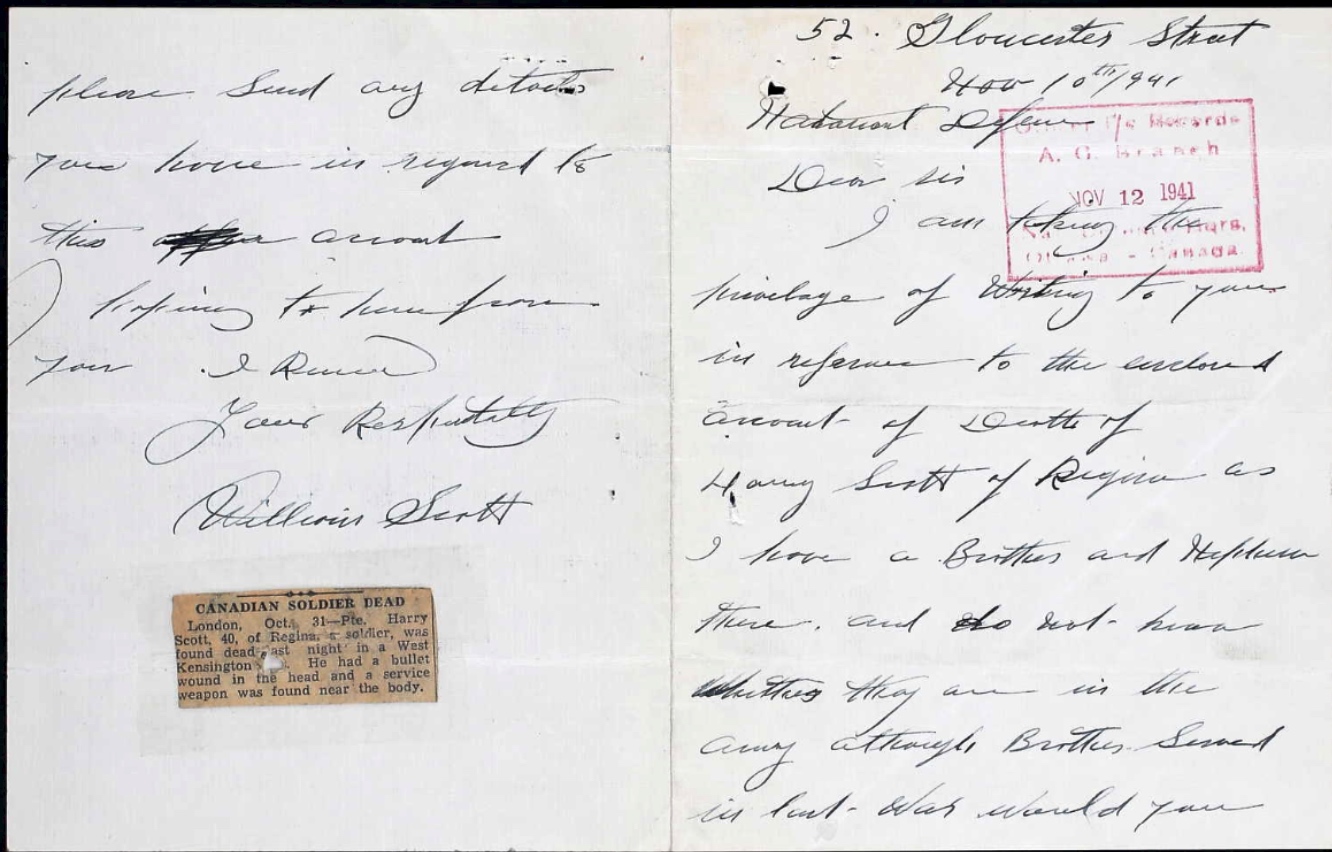 52. Gloucester Street
Nov 10th/1941
National Defence
Dear Sir
I am taking the
privelage of Writing to you
in reference to the enclosed
account of Death of
Harry Scott of Regina as
I have a Brother and Nephew
there. and do not know
Whether they are in the
army although Brother Served
in last War would you
Officer i/c Records
A. G. Branch
NOV 12 1941
Ottawa - Canada.
please Send any details
you have in regard to
this account
hoping to hear from
you I Remain
Your Respectully
William Scott
CANADIAN SOLDIER DEAD
London, Oct. 31—Pte. Harry
Scott, 40, of Regina, a soldier, was
found dead last night in a West
Kensington He had a bullet
wound in the head and a service
weapon was found near the body.